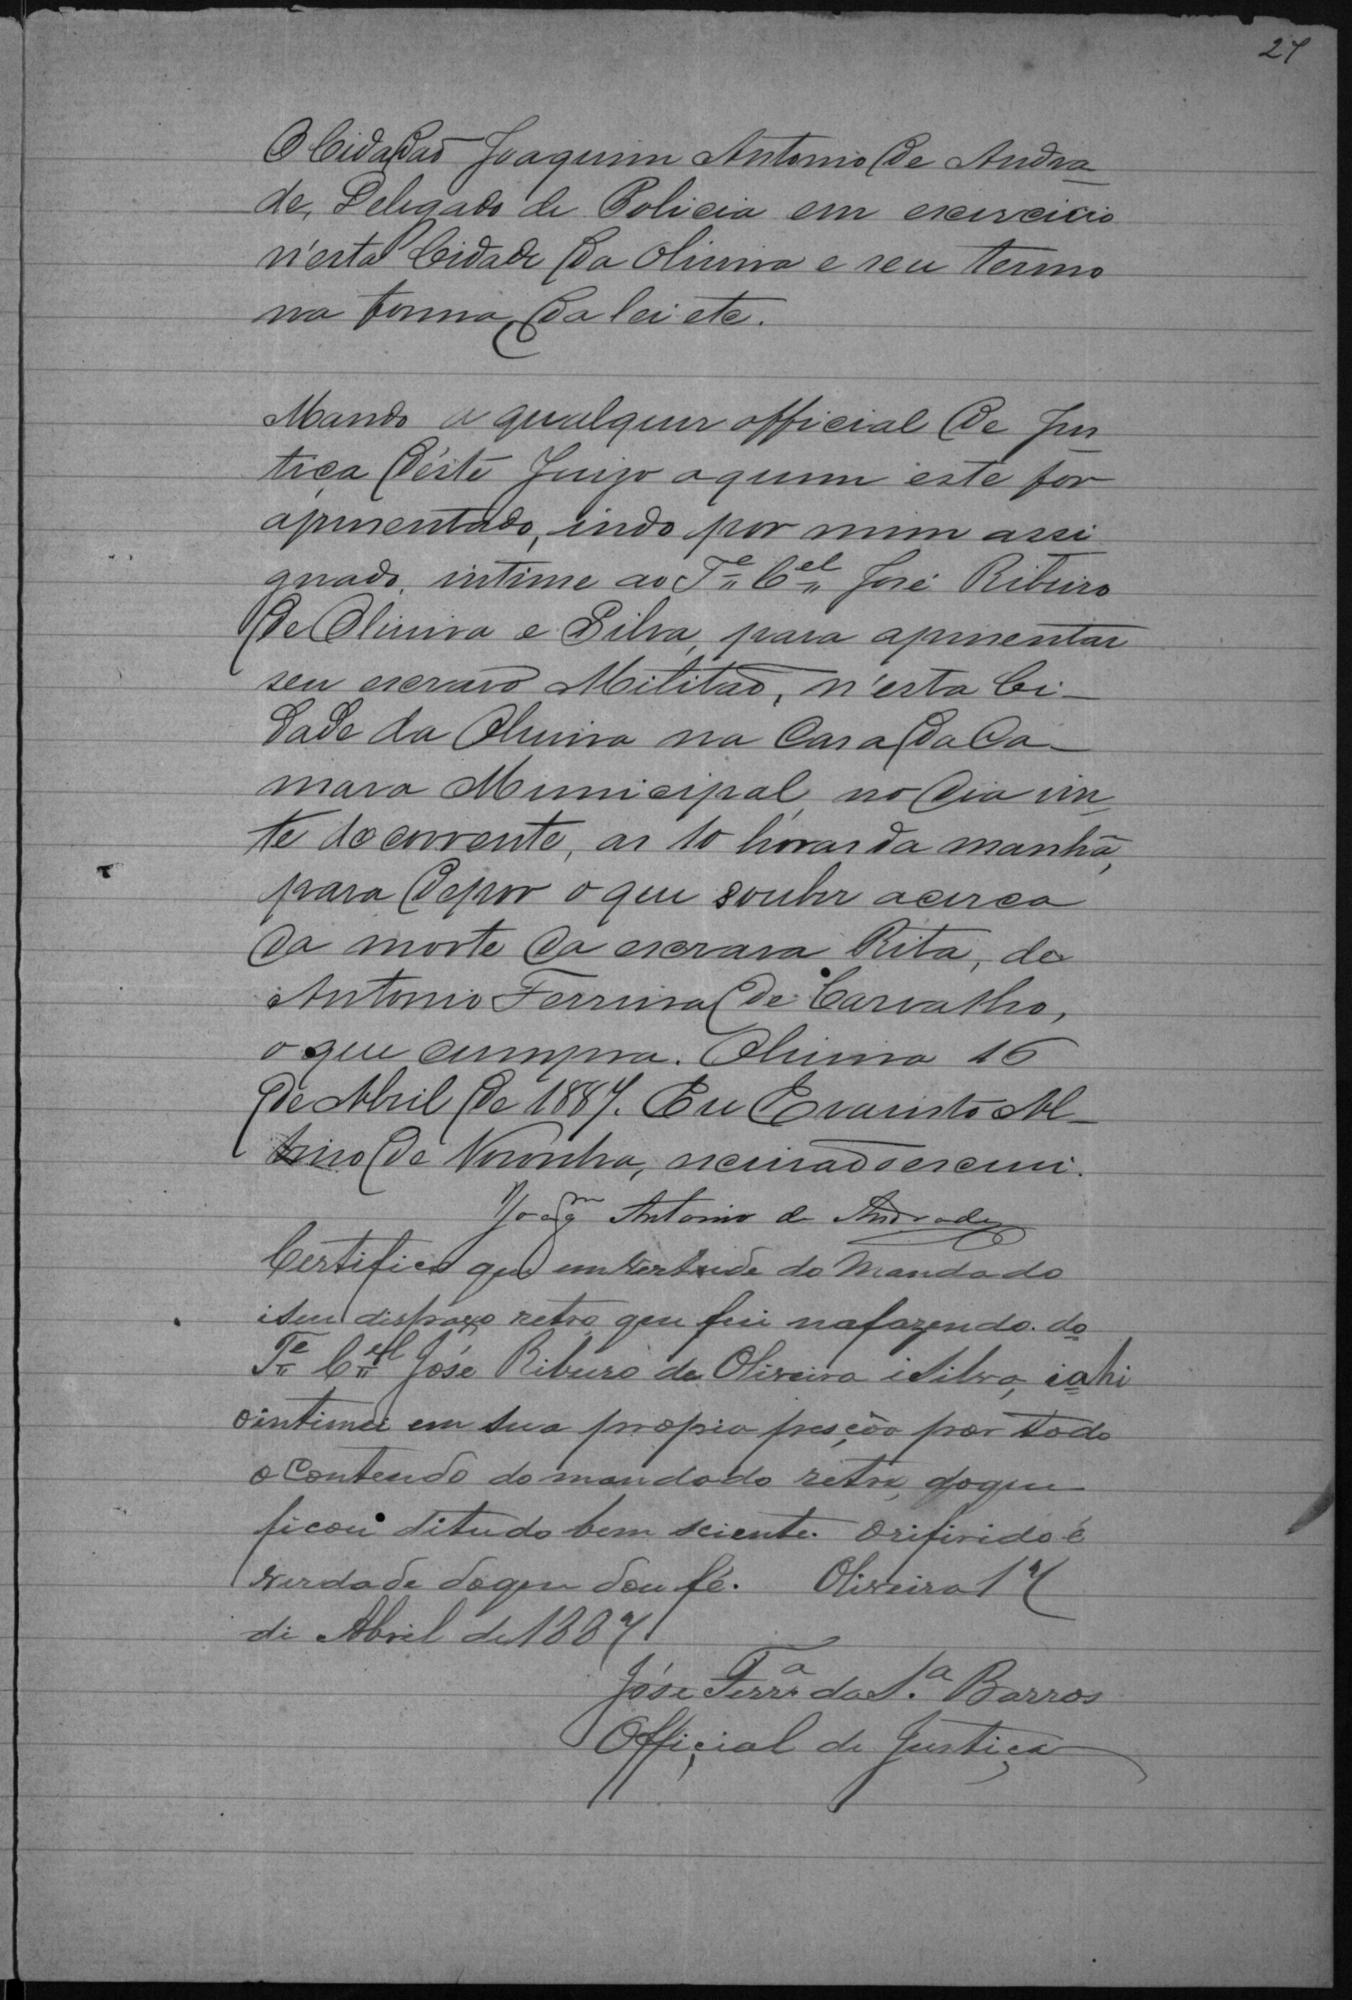 27
O Cidadão Joaquim Antonio de Andra
de, Delegado de Policia em exercicio
n'esta Cidade da Oliveira e seu termo
na forma da lei etc.
Mando a qualquer official de Jus
tiça d'éste Juizo a quem este fôr
apresentado, indo por mim assi
gnado, intime ao Te Cel José Ribeiro
de Oliveira e Silva, para apresentar
seu escravo Militão, n'esta Ci-
dade da Oliveira na Casa da Ca-
mara Municipal, no dia vin
te do corrente, as 10 horas da manhã,
para depor o que souber acerca
da morte da escrava Rita, de
Antonio Ferreira de Carvalho,
o que cumpra. Oliveira 16
de Abril de 1887. Eu Evaristo Al-
vino de Noronha, escrivão o escrevi.
Joaqm Antonio de Andrade
Certifico que em vertude do mandado
i seu despaxo retro que fui na fazenda do
Te Cel José Ribeiro de Oliveira i Silva, i ahi
o intimei em sua propria presção por todo
o contendo do mandado retro, do que
ficou di tudo bem sciente. O rifirido é
verdade do que dou fé. Oliveira 17
di Abril de 1887
José Ferra da Sa Barros
Official de Justiça